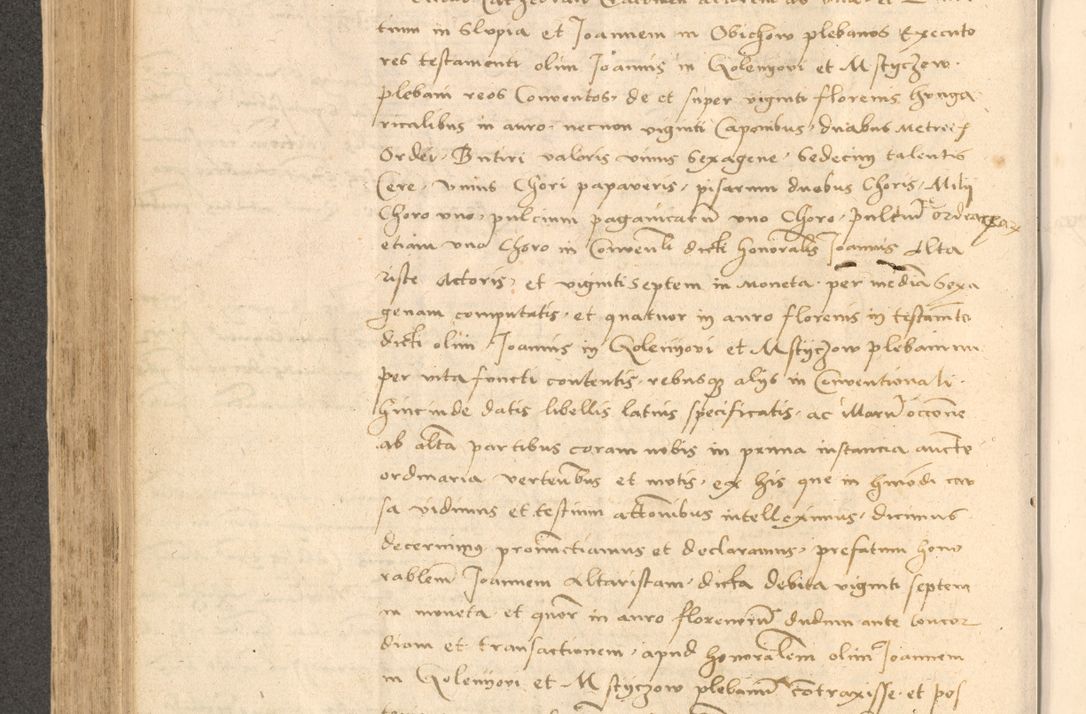 tium in Slupia et Joannem in Obichow plebanos Executo
res testamenti olim Joannis in Golenyovi et Mstyczow
plebani reos Conventos, de et super viginti florenis hunga
ricalibus in auro, necnon viginti Caponibus, duabus Metretis
Ordei, Butiri valoris unius sexagene, Sedecim talentis
Cere, Unius Chori papaveris, pisarum duobus Choris, Milij
Choro uno, pulcium paganicarum uno Choro, pultium ordeacear
etiam uno Choro in Conventi dicti honorabilis Joannis Alta
riste Actoris, et viginti Septem in Moneta per mediam Sexa
genam computatis, et quatuor in auro florenis in testamento
dicti olim Joannis in Golenyovi et Mstyczow plebani nu
per vita functi contentis, rebusque alijs in Conventionali
hincinde datis libellis latius specificatis, ac illarum occasione
ab altera partibus coram nobis in prima instancia aucte
ordinaria vertentibus et motis, ex his que in huiusmodi cau
sa vidimus et testium attestationibus intelleximus, dicimus
decernimus pronunctiamus et declaramus, prefatum hono
rablem Joannem Altaristam, dicta debita viginti septem
in moneta, et quatuor in auro florenorum dudum ante concor
diam et transactionem, apud honorabilem olim Joannem
in Golenyovi et Mstyczow plebanum contraxisse, et pos